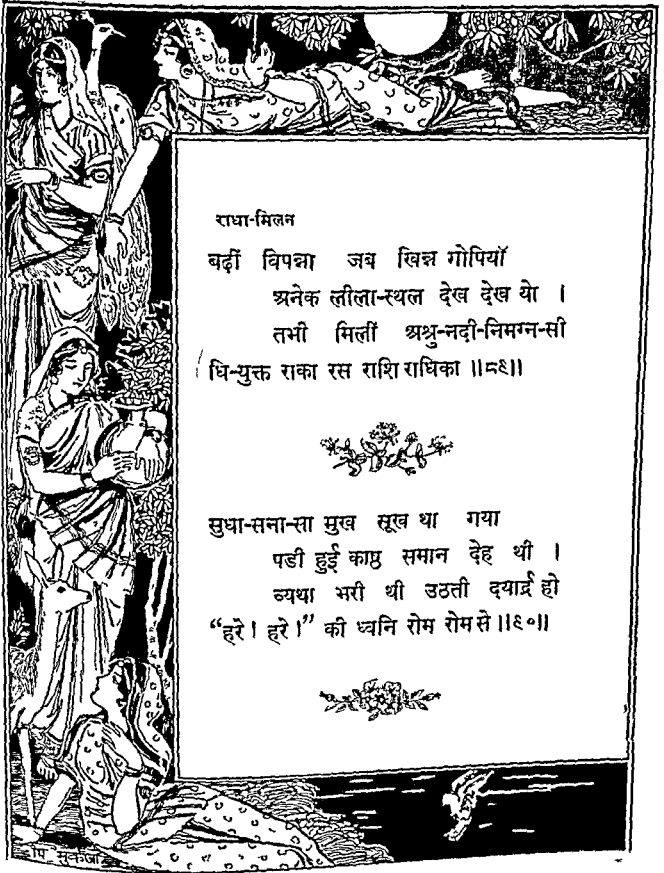 राधा-मिलन
बढ़ीं विपन्ना जब खिन्न गोपियाँ
अनेक लीला-स्थल देख देख यो ।
तभी मिलीं अश्रु-नदी-निमग्न-सी
धि-युक्त राका रस राशि राधिका ॥८९॥
सुधा-सना-सा मुख सूख था गया
पडी हुई काष्ठ समान देह थी ।
व्यथा भरी थी उठती दयार्द्र हो
“हरे। हरे।” की ध्वनि रोम रोम से ॥९०॥
पि मुकर्जी